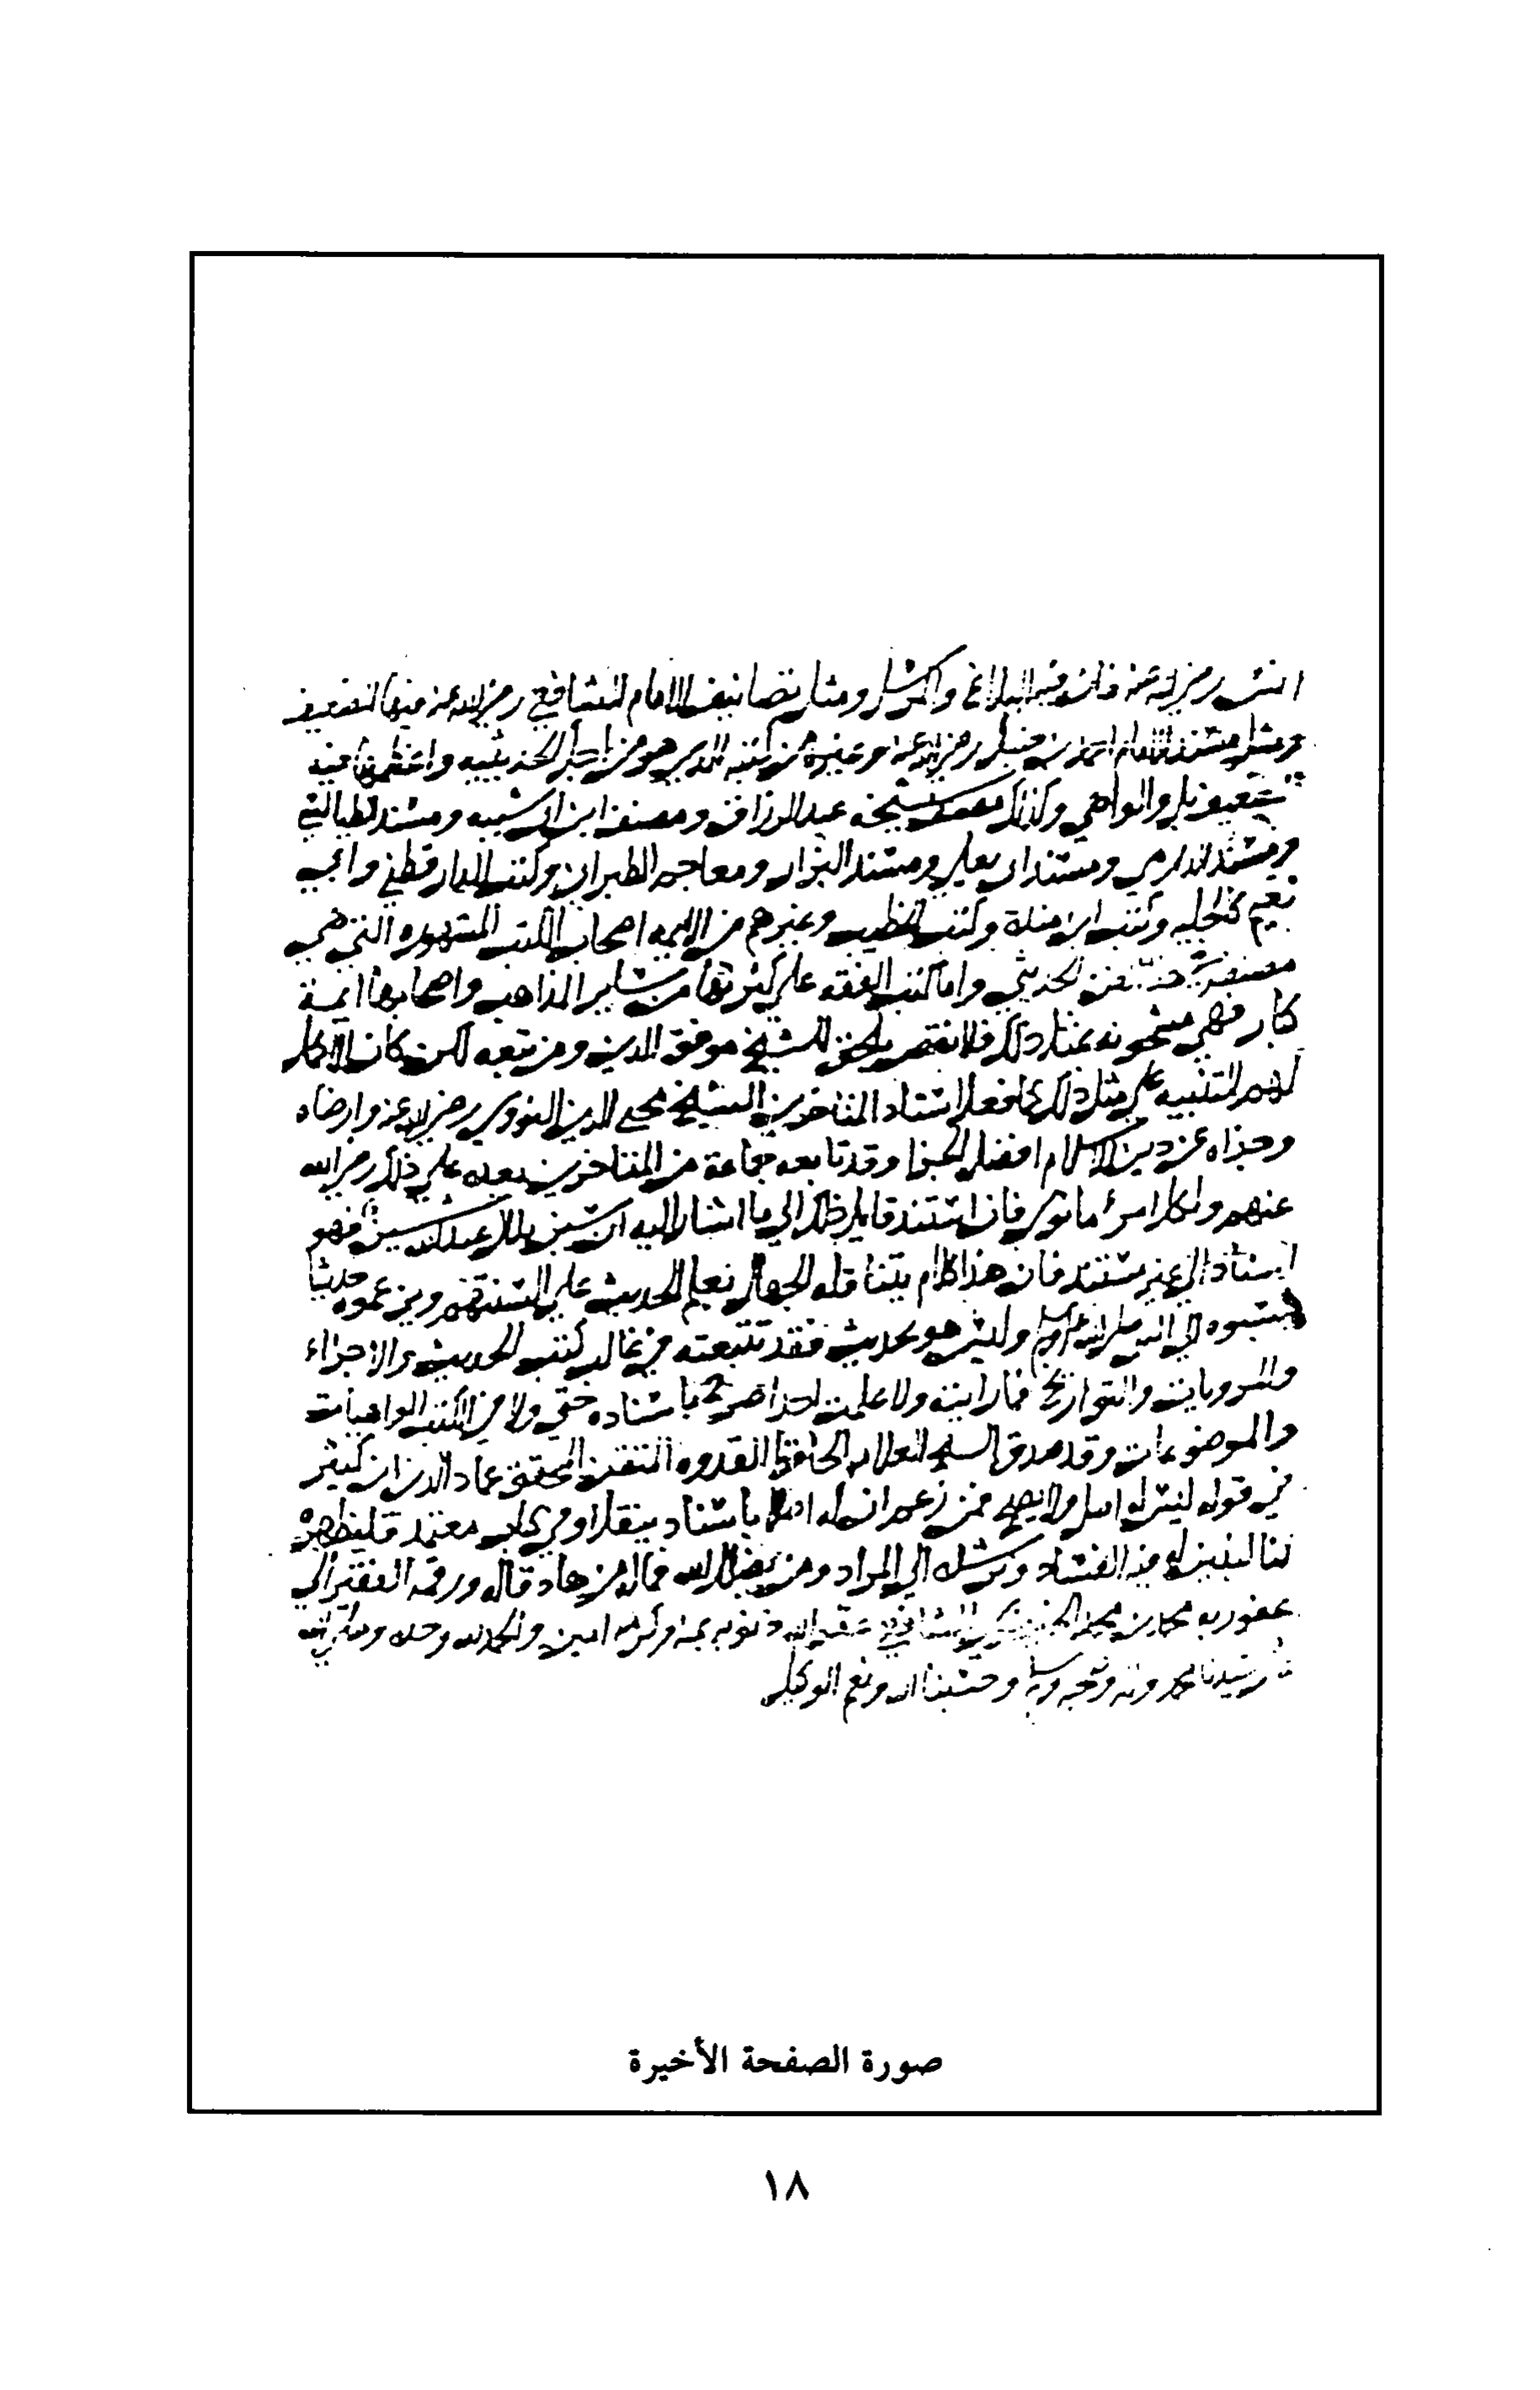 انس رضي الله عنه فان فيه البلاغ والمرسل ومثل تصانيف الامام الشافعي رضي الله عنه فيها الضعيف
ومثل مسند الامام احمد بن حنبل رضي الله عنه وغيره من كتبه الذي هو من اجل الحديثيه واعظمها فيه
الضعيف بل والواهي وكذلك مصنف شيخه عبد الرزاق ومصنف ابن ابي شيبه ومسند الطيالسي
ومسند الدارمي ومسند ابي يعلي ومسند البزار ومعاجم الطبراني وكتب الدارقطني وابي
نعيم كالحليه وكتب ابن منده وكتب الخطيب وغيرهم من الايمه اصحاب الكتب المشهوره التي هي
مصنفة الحديثي واما كتب الفقه علي كثرتها من ساير المذاهب واصحابها ايمة
كبار فهي مشحونه بمثل ذلك فلا نقص يلحق للشيخ موفق الدين ومن تبعه لكن كان الاكمل
لهم التنبيه علي مثل ذلك كما فعل استاد المتاخرين الشيخ محيي الدين النووي رضي الله عنه وارضاه
وجزاه عن دين الاسلام افضل الجزا وقد تابعه جماعة من المتاخرين بعده علي ذلك رضي الله
عنهم ولكل امرئ ما نوي فان استند قايل ذلك الي ما اشار اليه ان سين بلال عند الله شين فهو
استناد الي غير مستند فان هذا كلام يتناقله الجهال بعلم الحديث علي السنتهم ويزعموه حديثا
ينسبوه الي النبي صلي الله عليه وسلم وليس هو بحديث فقد تتبعته في غالب كتب الحديث والاجزاء
والمرويات والتواريخ فما رايته ولا علمت احدا اخرجه باسناده حتي ولا في الكتب الواهيات
والموضوعات وقد صدق الشيخ العلامه الحافظ القدوه المتقن المحقق عماد الدين ابن كثير
في قوله ليس له اصل ولا يصح فمن زعم ان له اصلا باسناد ينقل او في كتاب معتمد فليظهره
لنا لنبين له فيه الفساد ونرشده الي المراد ومن يضلل الله فما له من هاد قال ورقه الفقير الي
عفو ربه محمد بن محمد الخيضري الشافعي غفر الله ذنوبه بمنه وكرمه امين والحمد لله وحده وصلي الله
علي سيدنا محمد واله وصحبه وسلم وحسبنا الله ونعم الوكيل
صورة الصفحة الأخيرة
١٨